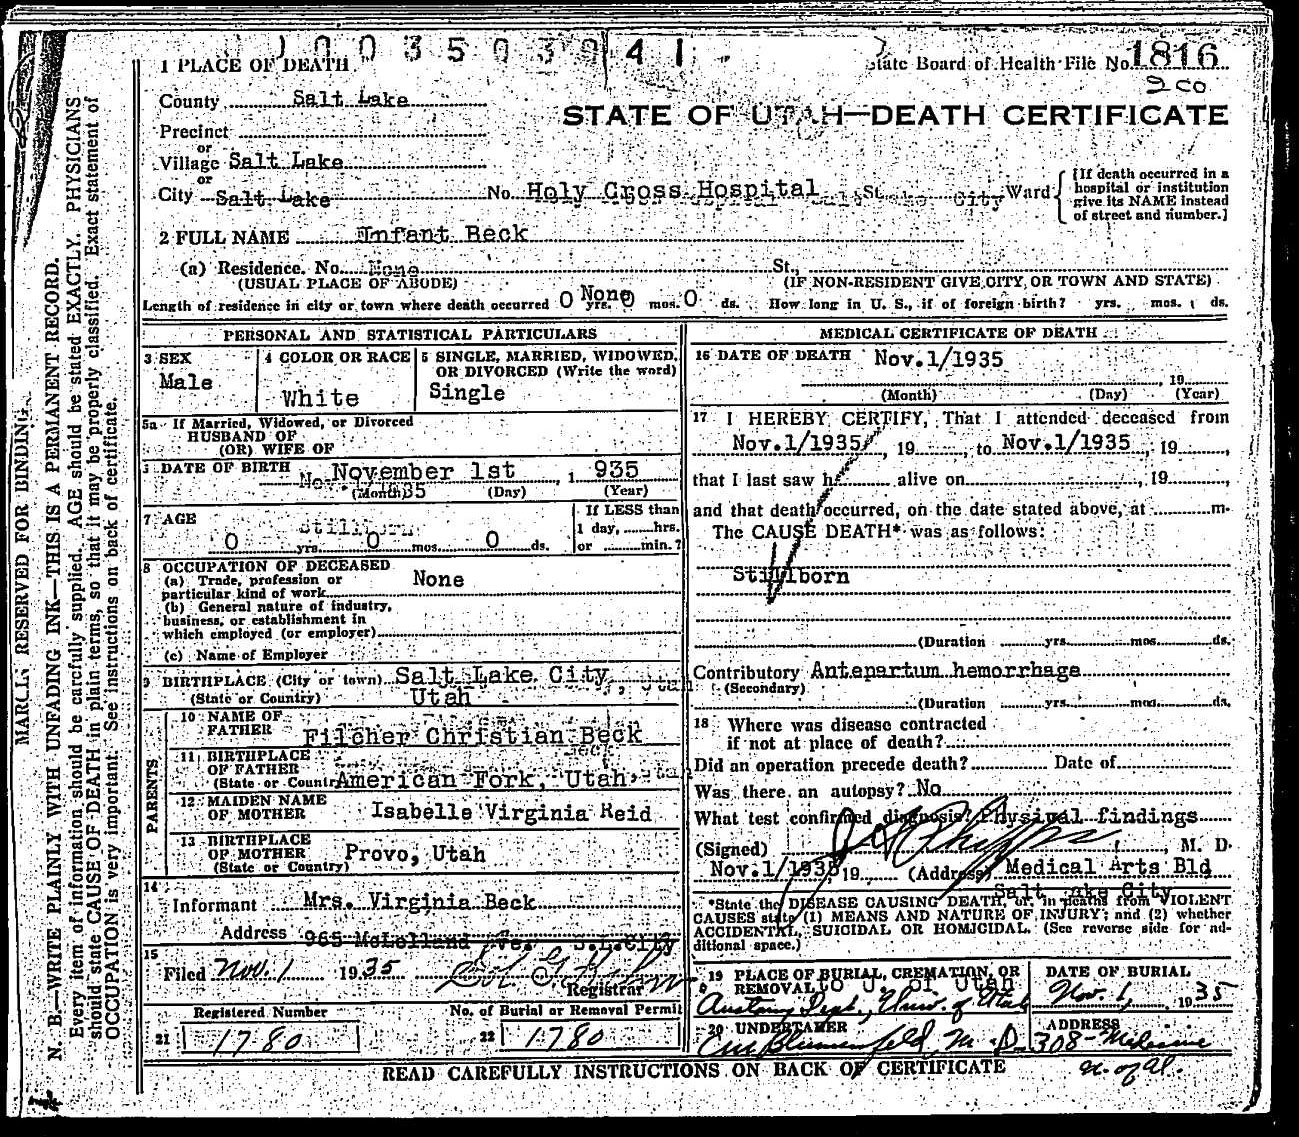 1003503041
1 PLACE OF DEATH
State Board of Health File No. 1816
County Salt Lake
STATE OF UTAH—DEATH CERTIFICATE
Precinct
or
Village Salt Lake
or
City Salt Lake No. Holy Cross Hospital St. Ward
[If death occurred in a
hospital or institution
give its NAME instead
of street and number.]
2 FULL NAME Infant Beck
(a) Residence. No. None St.,
(USUAL PLACE OF ABODE) (IF NON-RESIDENT GIVE CITY OR TOWN AND STATE)
Length of residence in city or town where death occurred 0 yrs. None 0 mos. 0 ds. How long in U. S., if of foreign birth? yrs. mos. ds.
PERSONAL AND STATISTICAL PARTICULARS
3 SEX
Male
4 COLOR OR RACE
White
5 SINGLE, MARRIED, WIDOWED,
OR DIVORCED (Write the word)
Single
5a If Married, Widowed, or Divorced
HUSBAND OF
(OR) WIFE OF
DATE OF BIRTH November 1st, 1935
(Month) (Day) (Year)
7 AGE Stillborn
0 yrs. 0 mos. 0 ds.
If LESS than
1 day, hrs.
or min.?
8 OCCUPATION OF DECEASED
(a) Trade, profession or
particular kind of work None
(b) General nature of industry,
business, or establishment in
which employed (or employer)
(c) Name of Employer
9 BIRTHPLACE (City or town) Salt Lake City, Utah
(State or Country) Utah
PARENTS
10 NAME OF
FATHER Filcher Christian Beck
11 BIRTHPLACE
OF FATHER
(State or Country) American Fork, Utah
12 MAIDEN NAME
OF MOTHER Isabelle Virginia Reid
13 BIRTHPLACE
OF MOTHER
(State or Country) Provo, Utah
14
Informant Mrs. Virginia Beck
Address 965 McLelland Ave. S.L.City
15
Filed Nov. 1 1935
Registrar
Registered Number No. of Burial or Removal Permit
21 1780 22 1780
MEDICAL CERTIFICATE OF DEATH
16 DATE OF DEATH Nov.1/1935
, 19
(Month) (Day) (Year)
17 I HEREBY CERTIFY, That I attended deceased from
Nov.1/1935, 19, to Nov.1/1935, 19,
that I last saw h alive on, 19,
and that death occurred, on the date stated above, at m.
The CAUSE DEATH* was as follows:
Stillborn
(Duration yrs. mos. ds.
Contributory Antepartum hemorrhage
(Secondary)
(Duration yrs. mos. ds.
18 Where was disease contracted
if not at place of death?
Did an operation precede death? Date of
Was there an autopsy? No
What test confirmed diagnosis? Physival findings
(Signed) , M. D.
Nov.1/1935, 19 (Address) Medical Arts Bld
Salt Lake City
*State the DISEASE CAUSING DEATH, or, in deaths from VIOLENT
CAUSES state (1) MEANS AND NATURE OF INJURY; and (2) whether
ACCIDENTAL, SUICIDAL OR HOMICIDAL. (See reverse side for ad-
ditional space.)
19 PLACE OF BURIAL, CREMATION, OR
REMOVAL to U. of Utah
Anatomy Dept., Univ. of Utah
DATE OF BURIAL
Nov. 1, 1935
20 UNDERTAKER
E. M. Blumenfeld, M. D.
ADDRESS
308- Medicine
READ CAREFULLY INSTRUCTIONS ON BACK OF CERTIFICATE
MARGIN RESERVED FOR BINDING
N. B.—WRITE PLAINLY WITH UNFADING INK—THIS IS A PERMANENT RECORD.
Every item of information should be carefully supplied. AGE should be stated EXACTLY. PHYSICIANS
should state CAUSE OF DEATH in plain terms, so that it may be properly classified. Exact statement of
OCCUPATION is very important. See instructions on back of certificate.